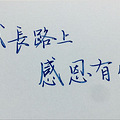 長路上
感恩有